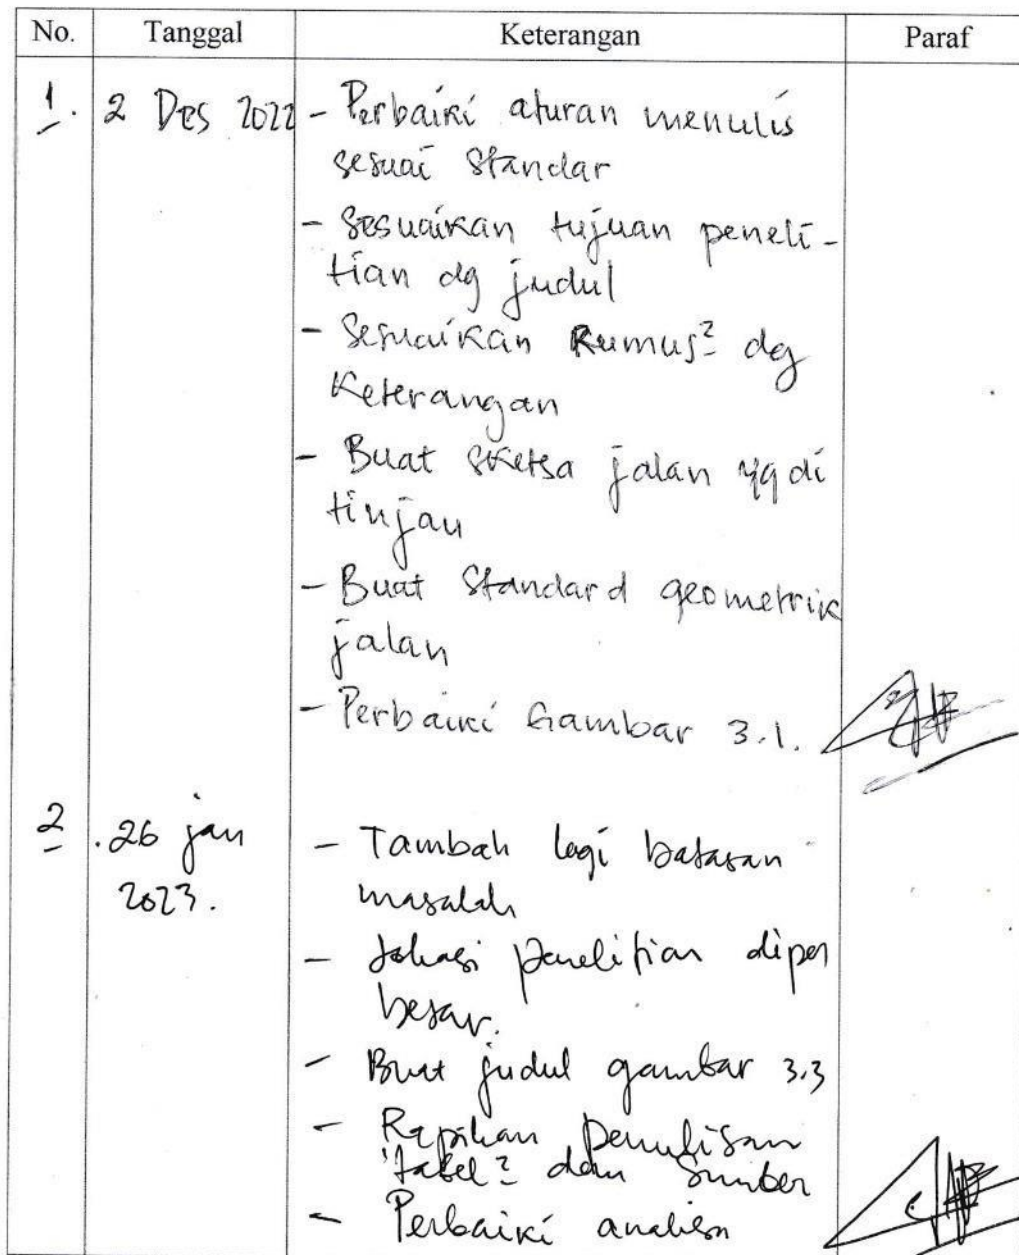 No. Tanggal Keterangan Paraf
1. 2 Des 2022 - Perbaiki aturan menulis
sesuai standar
- Sesuaikan tujuan peneli-
tian dg judul
- Sesuaikan Rumus² dg
Keterangan
- Buat sketsa jalan yg di
tinjau
- Buat Standard geometrik
jalan
- Perbaiki Gambar 3.1.
2. 26 jan - Tambah lagi batasan
2023. masalah
- Lokasi penelitian diper
besar.
- Buat judul gambar 3.3
- Rapikan penulisan
tabel² dan Sumber
- Perbaiki analisa